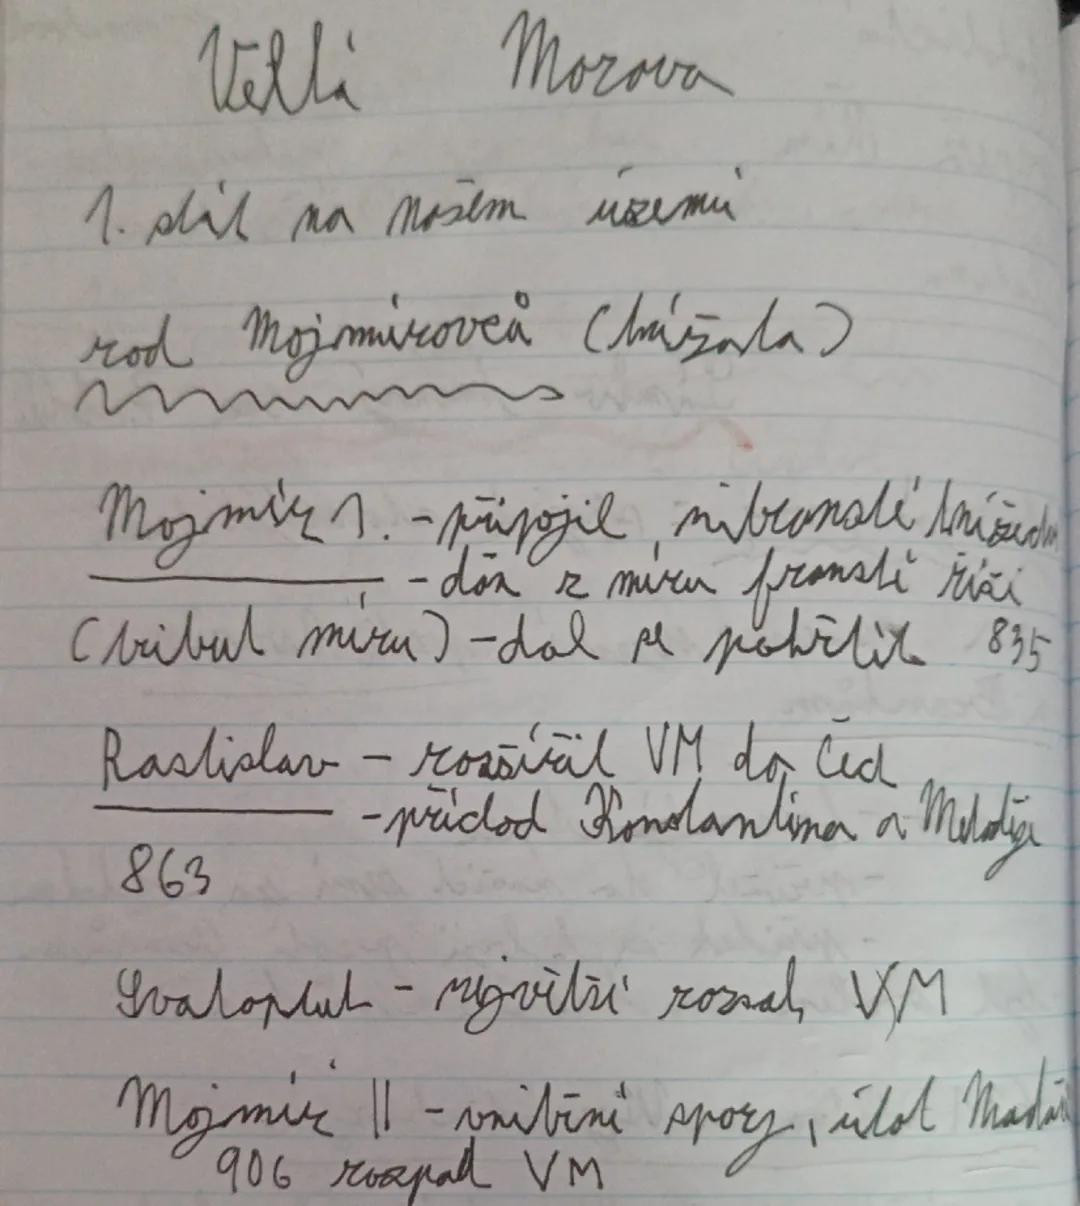 Velká Morava
1. stát na našem území
rod Mojmírovců (knížata)
Mojmír 1. - připojil nitranské
- daň z míru franské říši
(tribut míru) - dal se pokřtít 835
Rastislav - rozšířil VM do Čech
- příchod Konstantina a Metoděje
863
Svatopluk - největší rozsah VM
Mojmír II - vnitřní spory, útok
906 rozpad VM